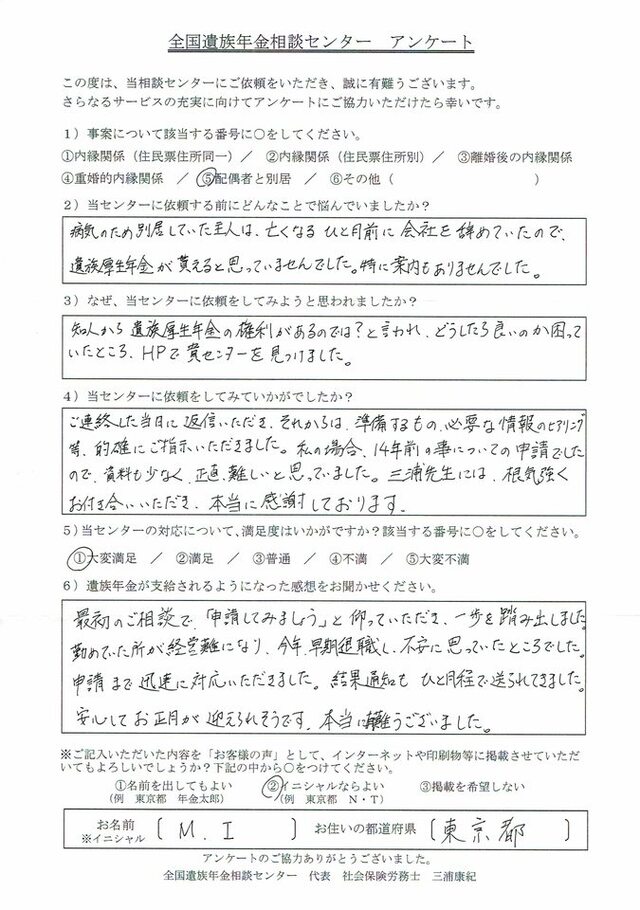 全国遺族年金相談センター　アンケート
この度は、当相談センターにご依頼をいただき、誠に有難うございます。
さらなるサービスの充実に向けてアンケートにご協力いただけたら幸いです。
1）事案について該当する番号に○をしてください。
①内縁関係（住民票住所同一）／　②内縁関係（住民票住所別）／　③離婚後の内縁関係
④重婚的内縁関係　／　⑤配偶者と別居　／　⑥その他（　　　　　　　　　　）
2）当センターに依頼する前にどんなことで悩んでいましたか？
病気のため別居していた主人は、亡くなるひと月前に会社を辞めていたので、
遺族厚生年金が貰えると思っていませんでした。特に案内もありませんでした。
3）なぜ、当センターに依頼をしてみようと思われましたか？
知人から遺族厚生年金の権利があるのでは？と言われ、どうしたら良いのか困って
いたところ、HPで貴センターを見つけました。
4）当センターに依頼をしてみていかがでしたか？
ご連絡した当日に返信いただき、それからは、準備するもの、必要な情報のヒアリング
等、的確にご指示いただきました。私の場合、14年前の事についての申請でした
ので、資料も少なく、正直、難しいと思っていました。三浦先生には、根気強く
お付き合いいただき、本当に感謝しております。
5）当センターの対応について、満足度はいかがですか？該当する番号に○をしてください。
①大変満足　／　②満足　／　③普通　／　④不満　／　⑤大変不満
6）遺族年金が支給されるようになった感想をお聞かせください。
最初のご相談で、「申請してみましょう」と仰っていただき、一歩を踏み出しました。
勤めていた所が経営難になり、今年、早期退職し、不安に思っていたところでした。
申請まで迅速に対応いただきました。結果通知も ひと月程で送られてきました。
安心してお正月が迎えられそうです。本当に有難うございました。
※ご記入いただいた内容を「お客様の声」として、インターネットや印刷物等に掲載させていただ
いてもよろしいでしょうか？下記の中から○をつけてください。
①名前を出してもよい　②イニシャルならよい　③掲載を希望しない
（例　東京都　年金太郎）　（例　東京都　N・T）
お名前　〔 M. I 〕　お住いの都道府県　〔 東京都 〕
※イニシャル
アンケートのご協力ありがとうございました。
全国遺族年金相談センター　代表　社会保険労務士　三浦康紀